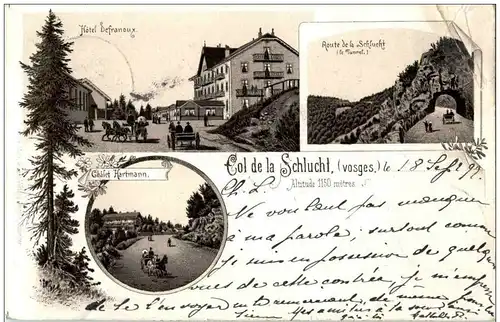 Hôtel Defranoux.
Route de la Schlucht
(Le Tunnel.)
Châlet Hartmann.
Col de la Schlucht, (vosges.) le 18 Sept 97
Altitude 1150 mètres.
Ne voulant pas manquer
à ma parole, surtout comme
je suis en possession de quelques
vues de cette contrée, je m'empresse
de te l'envoyer en te remerciant, de même
mes amitiés à